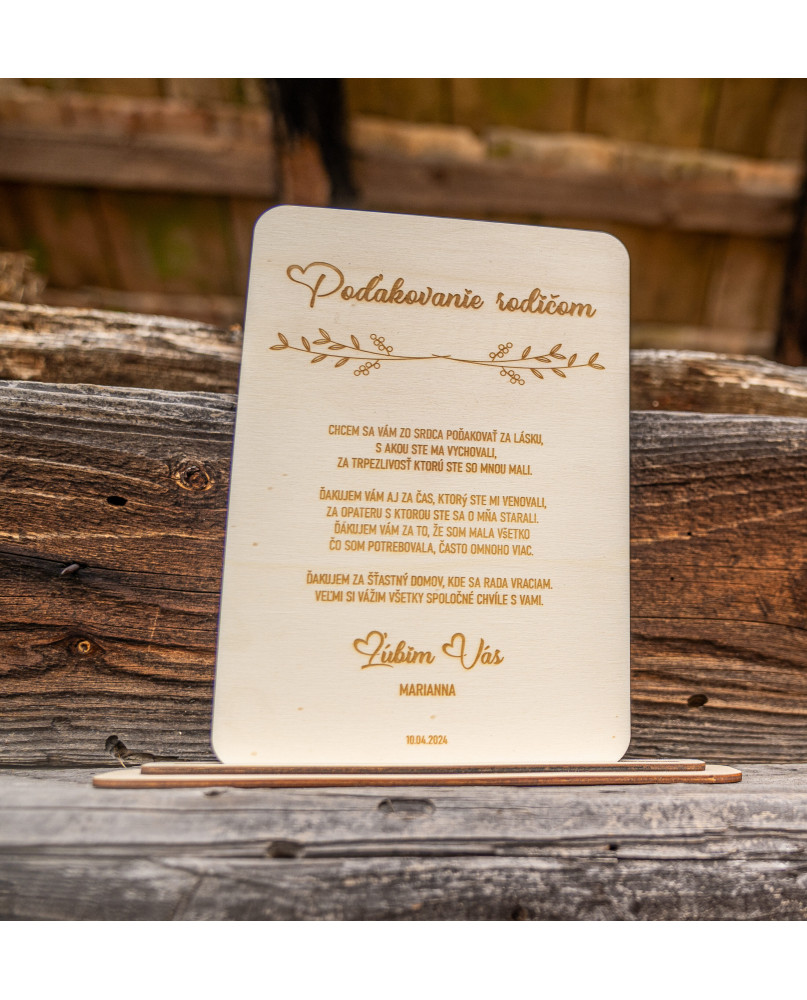 Poďakovanie rodičom
CHCEM SA VÁM ZO SRDCA POĎAKOVAŤ ZA LÁSKU,
S AKOU STE MA VYCHOVALI,
ZA TRPEZLIVOSŤ KTORÚ STE SO MNOU MALI.
ĎAKUJEM VÁM AJ ZA ČAS, KTORÝ STE MI VENOVALI,
ZA OPATERU S KTOROU STE SA O MŇA STARALI.
ĎÁKUJEM VÁM ZA TO, ŽE SOM MALA VŠETKO
ČO SOM POTREBOVALA, ČASTO OMNOHO VIAC.
ĎAKUJEM ZA ŠŤASTNÝ DOMOV, KDE SA RADA VRACIAM.
VEĽMI SI VÁŽIM VŠETKY SPOLOČNÉ CHVÍLE S VAMI.
Ľúbim Vás
MARIANNA
10.04.2024